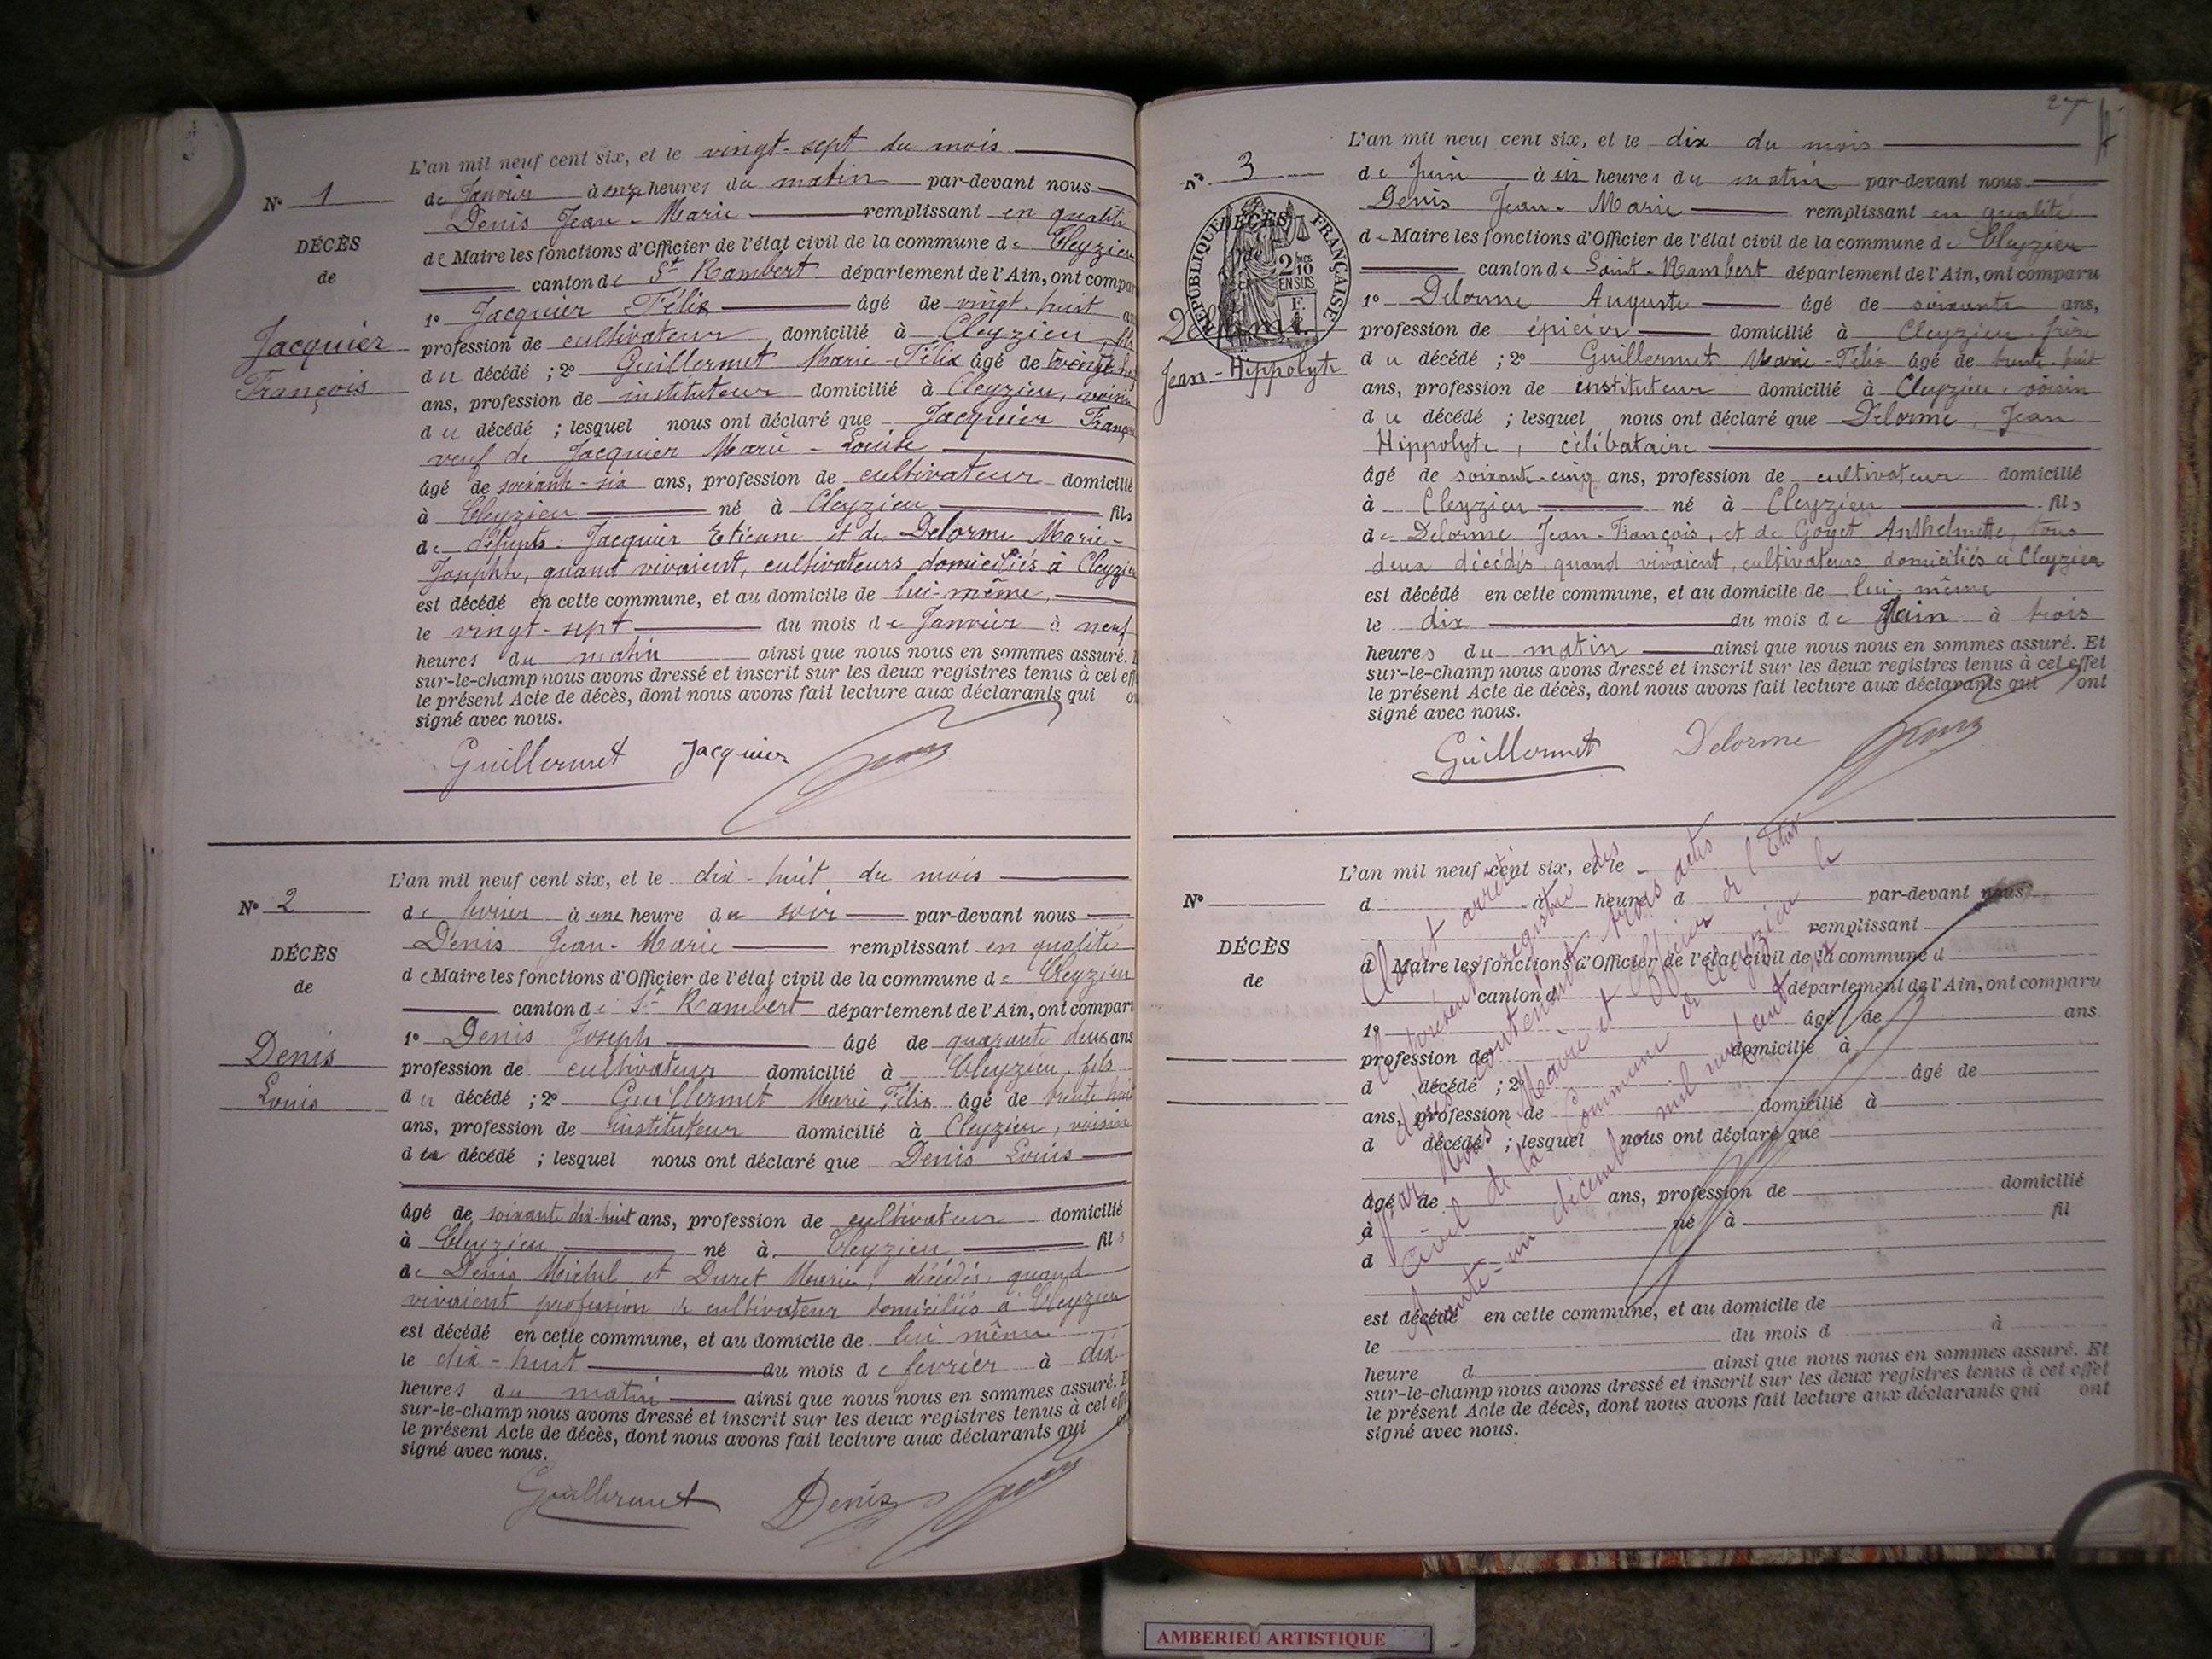 L'an mil neuf cent six, et le vingt-sept du mois
de Janvier à onze heures du matin par-devant nous
Denis Jean-Marie remplissant en qualité
de Maire les fonctions d'Officier de l'état civil de la commune de Cleyzieu
canton de St Rambert département de l'Ain, ont compar
1° Jacquier Félix âgé de vingt-huit
profession de cultivateur domicilié à Cleyzieu, fils
du décédé ; 2° Guillermet Marie-Félix âgé de
ans, profession de instituteur domicilié à Cleyzieu, voisin
du décédé ; lesquel nous ont déclaré que Jacquier Franç
veuf de Jacquier Marie-Louise
âgé de soixante-six ans, profession de cultivateur domicilié
à Cleyzieu né à Cleyzieu fils
de défunts Jacquier Etienne et de Delorme Marie-
Josephte, quand vivaient, cultivateurs domiciliés à Cleyzieu
est décédé en cette commune, et au domicile de lui-même,
le vingt-sept du mois de Janvier à neuf
heures du matin ainsi que nous nous en sommes assuré.
sur-le-champ nous avons dressé et inscrit sur les deux registres tenus à cet eff
le présent Acte de décès, dont nous avons fait lecture aux déclarants qui
signé avec nous.
Guillermet Jacquier
N° 1
DÉCÈS
de
Jacquier
François
L'an mil neuf cent six, et le dix-huit du mois
de fevrier à une heure du soir par-devant nous
Denis Jean-Marie remplissant en qualité
de Maire les fonctions d'Officier de l'état civil de la commune de Cleyzieu
canton de St Rambert département de l'Ain, ont compar
1° Denis Joseph âgé de quarante deux ans
profession de cultivateur domicilié à Cleyzieu, fils
du décédé ; 2° Guillermet Marie Félix âgé de trente huit
ans, profession de instituteur domicilié à Cleyzieu, voisin
du décédé ; lesquel nous ont déclaré que Denis Louis
âgé de soixante dix-huit ans, profession de cultivateur domicilié
à Cleyzieu né à Cleyzieu fils
de Denis Michel et Duret Marie, décédés, quand
vivaient profession de cultivateur domiciliés à Cleyzieu
est décédé en cette commune, et au domicile de lui même
le dix-huit du mois de fevrier à dix
heures du matin ainsi que nous nous en sommes assuré. E
sur-le-champ nous avons dressé et inscrit sur les deux registres tenus à cet eff
le présent Acte de décès, dont nous avons fait lecture aux déclarants qui
signé avec nous.
Guillermet Denis
N° 2
DÉCÈS
de
Denis
Louis
27
L'an mil neuf cent six, et le dix du mois
de Juin à six heures du matin par-devant nous
Denis Jean-Marie remplissant en qualité
de Maire les fonctions d'Officier de l'état civil de la commune de Cleyzieu
canton de Saint-Rambert département de l'Ain, ont comparu
1° Delorme Auguste âgé de soixante ans,
profession de épicier domicilié à Cleyzieu frère
du décédé ; 2° Guillermet Marie-Félix âgé de trente-huit
ans, profession de instituteur domicilié à Cleyzieu, voisin
du décédé ; lesquel nous ont déclaré que Delorme, Jean
Hippolyte, célibataire
âgé de soixant-cinq ans, profession de cultivateur domicilié
à Cleyzieu né à Cleyzieu fils
de Delorme Jean-François, et de Goyet Anthelmette, tous
deux décédés, quand vivaient, cultivateurs, domiciliés à Cleyzieu
est décédé en cette commune, et au domicile de lui-même
le dix du mois de Juin à trois
heures du matin ainsi que nous nous en sommes assuré. Et
sur-le-champ nous avons dressé et inscrit sur les deux registres tenus à cet effet
le présent Acte de décès, dont nous avons fait lecture aux déclarants qui ont
signé avec nous.
Guillermet Delorme
N° 3
DÉCÈS
RÉPUBLIQUE FRANÇAISE
2 10
EN SUS
Jean-Hippolyte
L'an mil neuf cent six, et le
d à heure d par-devant nous
remplissant
d Maire les fonctions d'Officier de l'état civil de la commune d
canton d département de l'Ain, ont comparu
1° âgé de ans
profession de domicilié à
d décédé ; 2° âgé de
ans, profession de domicilié à
d décédé ; lesquel nous ont déclaré que
âgé de ans, profession de domicilié
à né à fil
d
est décédé en cette commune, et au domicile de
le du mois d à
heure d ainsi que nous nous en sommes assuré. Et
sur-le-champ nous avons dressé et inscrit sur les deux registres tenus à cet effet
le présent Acte de décès, dont nous avons fait lecture aux déclarants qui ont
signé avec nous.
N°
DÉCÈS
de
Clos et arrêté
le présent registre des
décès contenant trois actes
par Nous Maire et Officier de l'Etat
Civil de la Commune de Cleyzieu le
trente-un décembre mil neuf cent six
AMBERIEU ARTISTIQUE